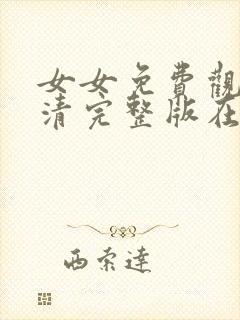 女女免費觀
清完整版在
西索達